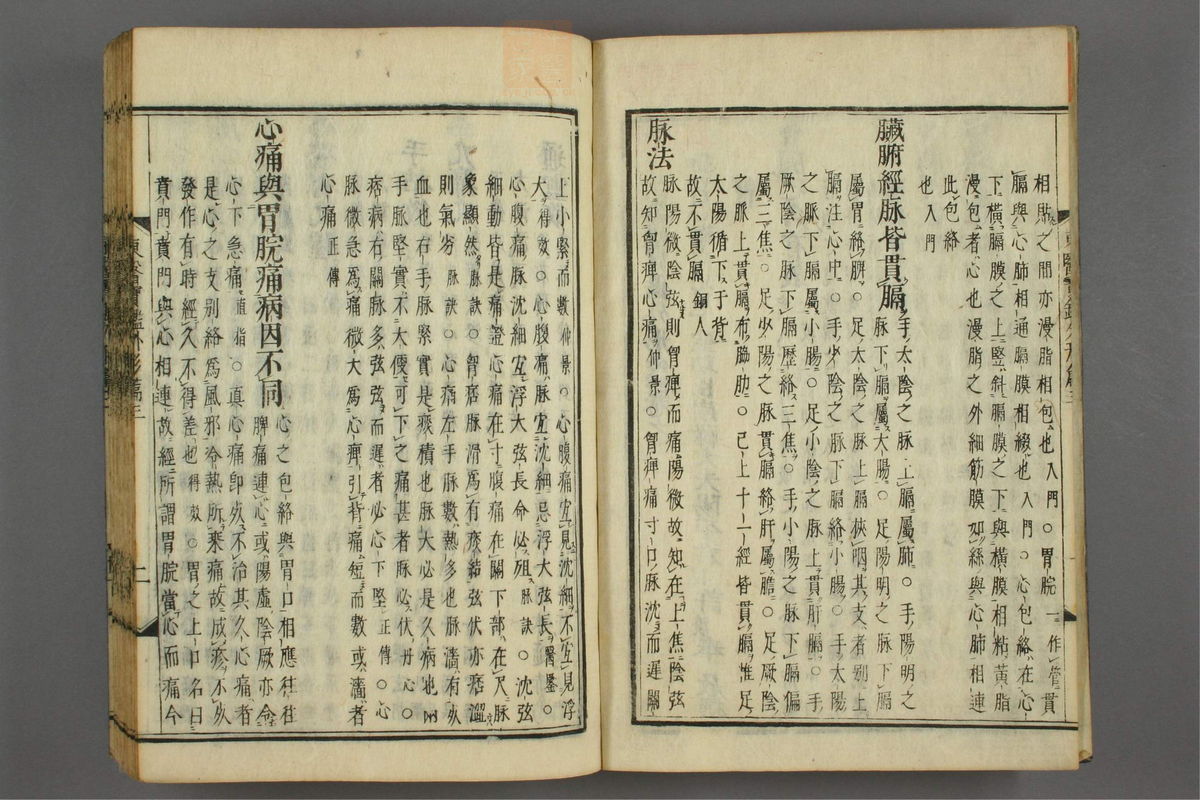 相貼之間亦漫脂相包也入門○胃脘一作管貫
膈與心肺相通膈膜相綴也入門○心包絡在心
下橫膈膜之上竪斜膈膜之下與橫膜相粘黃脂
漫包者心也漫脂之外細筋膜如絲與心肺相連
此包絡
也入門
臟腑經脉皆貫膈手太陰之脉上膈屬肺○手陽明之
脉下膈屬大腸○足陽明之脉下膈
屬胃絡脾○足太陰之脉上膈挾咽其支者別上
膈注心中○手少陰之脉下膈絡小腸○手太陽
之脉下膈屬小腸○足小陰之脉上貫肝膈○手
厥陰之脉下膈歷絡三焦○手小陽之脉下膈偏
屬三焦○足少陽之脉貫膈絡肝屬膽○足厥陰
之脉上貫膈布脇肋○已上十一經皆貫膈惟足
太陽循下于背
故不貫膈銅人
脉法
脉陽微陰弦則胷痺而痛陽微故知在上焦陰弦
故知胷痺心痛仲景○胷痺痛寸口脉沈而遲關
上小緊而數仲景○心腹痛宜見沈細不宜見浮
大得效○心腹痛脉宜沈細忌浮大弦長醫鑒○
心腹痛脉沈細宜浮大弦長命必殂脉訣○沈弦
細動皆是痛證心痛在寸腹痛在關下部在尺脉
象顯然脉訣○胷痞脉滑爲有痰結弦伏亦痞澀
則氣劣脉訣○心痛左手脉數熱多也脉濇有死
血也右手脉緊實是痰積也脉大必是久病也
手脉堅實不大便可下之痛甚者脉必伏丹心○
痞病右關脉多弦弦而遲者必心下堅正傳○心
脉微急爲痛微大爲心痺引背痛短而數或濇者
心痛正傳
心痛與胃脘痛病因不同心之包絡與胃口相應往往
脾痛連心或陽虛陰厥亦令
心下急痛直指○眞心痛卽死不治其久心痛者
是心之支別絡爲風邪冷熱所乘痛故成疹不死
發作有時經久不得差也得效○胃之上口名曰
賁門賁門與心相連故經所謂胃脘當心而痛今